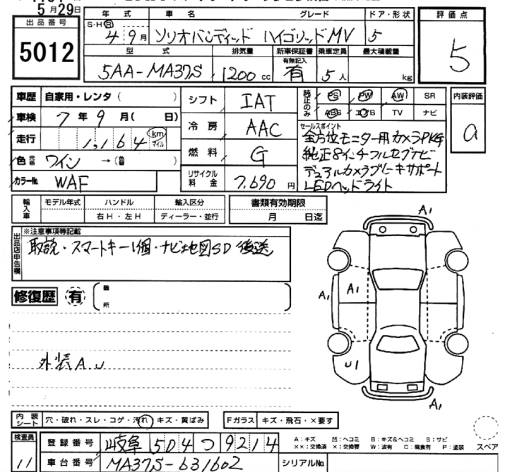 5月29日
出品番号
5012
年式 車名 グレード ドア・形状
S・H 4年9月 ソリオバンディッド ハイブリッドMV 5
型式 排気量 新車保証書 乗車定員 最大積載量
5AA-MA37S 1200cc 有 5人 kg
評価点
5
車歴 自家用・レンタ( )
車検 7年9月( 日)
走行 1,164 km マイル
色 ワイン →( )
カラーNo. WAF
シフト IAT
冷房 AAC
燃料 G
リサイクル料金 7,690円
純正のみ PS PW AW SR
TV ナビ
セールスポイント
全方位モニター用カメラPKG
純正8インチフルセグナビ
デュアルカメラブレーキサポート
LEDヘッドライト
内装評価
a
輸入車 モデル年式 ハンドル 輸入区分
年 右H・左H ディーラー・並行
書類有効期限
月 日迄
※注意事項等記載
出品店申告欄
取説・スマートキー1個・ナビ地図SD 後送
修復歴 有
箇所
外装A.U
A1
A1
A1
A1
U1
A1
内装シート 穴・破れ・スレ・コゲ・汚れ・キズ・黄ばみ
Fガラス キズ・飛石・×要す
A:キズ U:ヘコミ B:キズ&ヘコミ S:サビ
××:交換済 ×:交換 W:波有 C:腐食有 P:塗装
スペア
検査員
11
登録番号 岐阜 504 つ 9214
車台番号 MA37S-631602
シリアルNo.